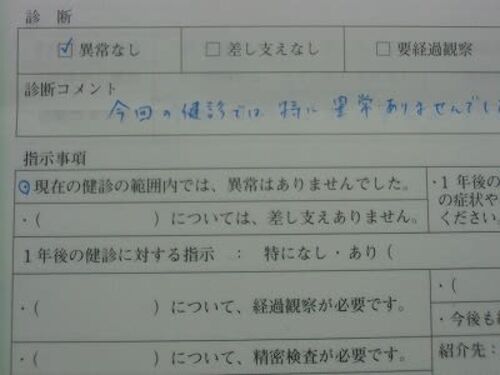 診 断
☑ 異常なし □ 差し支えなし □ 要経過観察
診断コメント
今回の健診では 特に 異常ありませんでし
指示事項
現在の健診の範囲内では、異常はありませんでした。
・( )については、差し支えありません。
・1年後の
の症状や
ください。
1年後の健診に対する指示 : 特になし・あり(
・( )について、経過観察が必要です。
・(
・今後も
・( )について、精密検査が必要です。
紹介先: